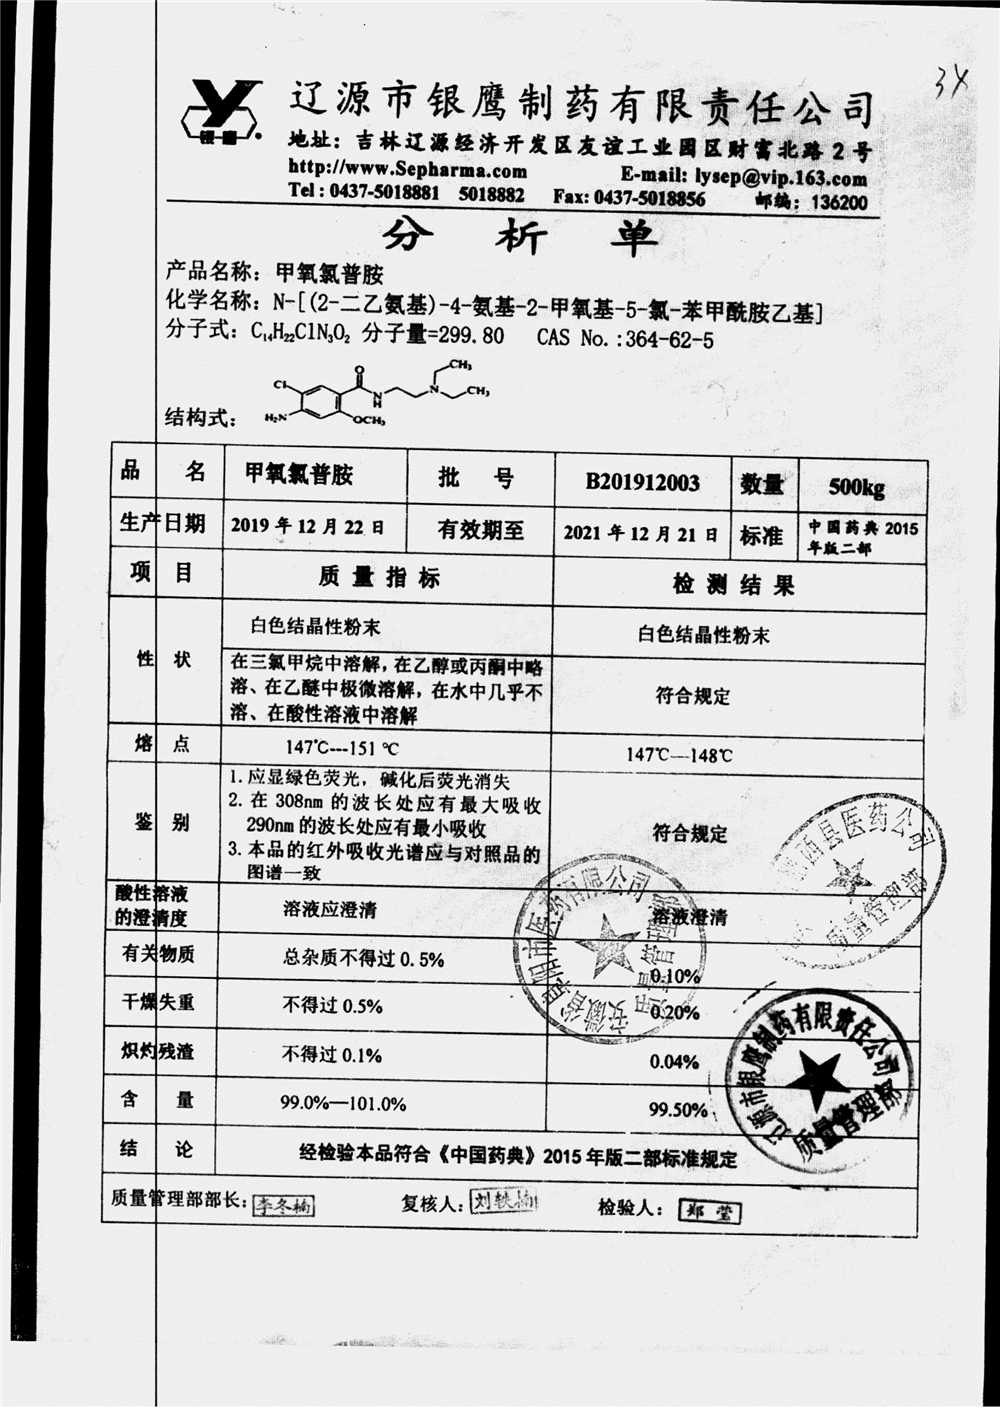 3X
银鹰
辽源市银鹰制药有限责任公司
地址：吉林辽源经济开发区友谊工业园区财富北路 2 号
http://www.Sepharma.com E-mail: lysep@vip.163.com
Tel : 0437-5018881 5018882 Fax: 0437-5018856 邮编：136200
分 析 单
产品名称：甲氧氯普胺
化学名称：N-[(2-二乙氨基)-4-氨基-2-甲氧基-5-氯-苯甲酰胺乙基]
分子式：C₁₄H₂₂ClN₃O₂ 分子量=299.80 CAS No.:364-62-5
结构式：
Cl O N H N CH₃ CH₃ H₂N OCH₃
品 名 甲氧氯普胺 批 号 B201912003 数量 500kg
生产日期 2019 年 12 月 22 日 有效期至 2021 年 12 月 21 日 标准 中国药典 2015
年版二部
项 目 质 量 指 标 检 测 结 果
性 状 白色结晶性粉末 白色结晶性粉末
在三氯甲烷中溶解，在乙醇或丙酮中略
溶、在乙醚中极微溶解，在水中几乎不
溶、在酸性溶液中溶解
符合规定
熔 点 147℃---151 ℃ 147℃—148℃
鉴 别
1. 应显绿色荧光，碱化后荧光消失
2. 在 308nm 的波长处应有最大吸收
290nm 的波长处应有最小吸收
3. 本品的红外吸收光谱应与对照品的
图谱一致
符合规定
酸性溶液
的澄清度
溶液应澄清 溶液澄清
有关物质 总杂质不得过 0.5% 0.10%
干燥失重 不得过 0.5% 0.20%
炽灼残渣 不得过 0.1% 0.04%
含 量 99.0%—101.0% 99.50%
结 论 经检验本品符合《中国药典》2015 年版二部标准规定
质量管理部部长： 李冬楠 复核人： 检验人： 郑莹
县医药公司
质量管理部
安徽省阜阳市医药有限公司
质量管理部
辽源市银鹰制药有限责任公司
质量管理部